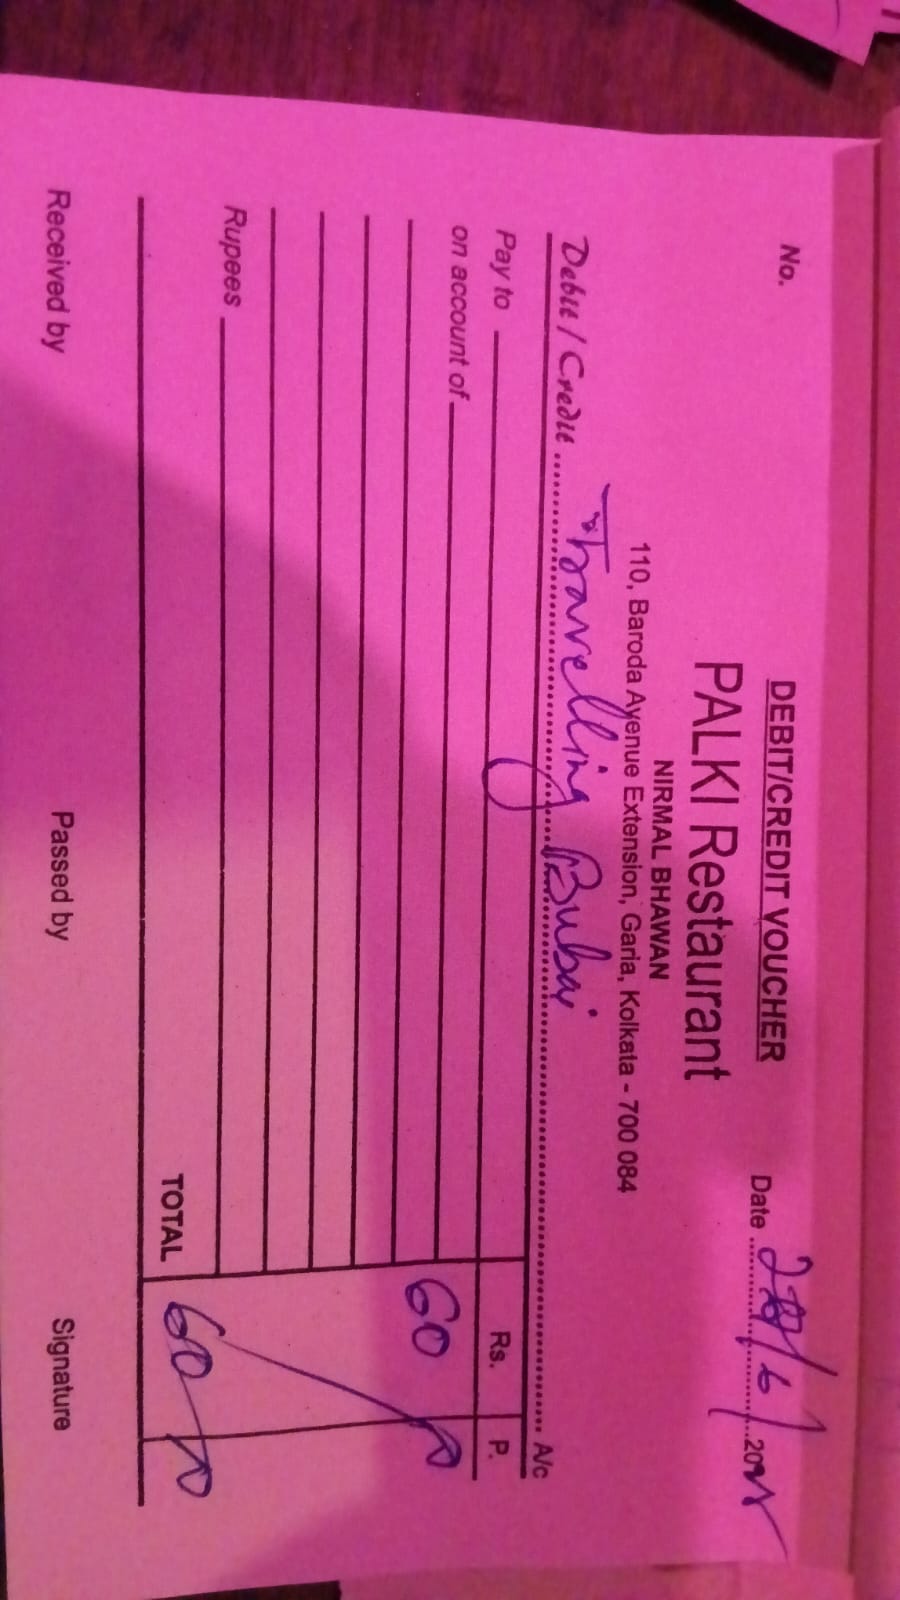 DEBIT/CREDIT VOUCHER
No.
PALKI Restaurant
Date
NIRMAL BHAWAN
110, Baroda Avenue Extension, Garia, Kolkata - 700 084
Debit / Credit Travelling Bubai A/c
Pay to Rs. P.
on account of 60
Rupees
TOTAL 60
Received by Passed by Signature